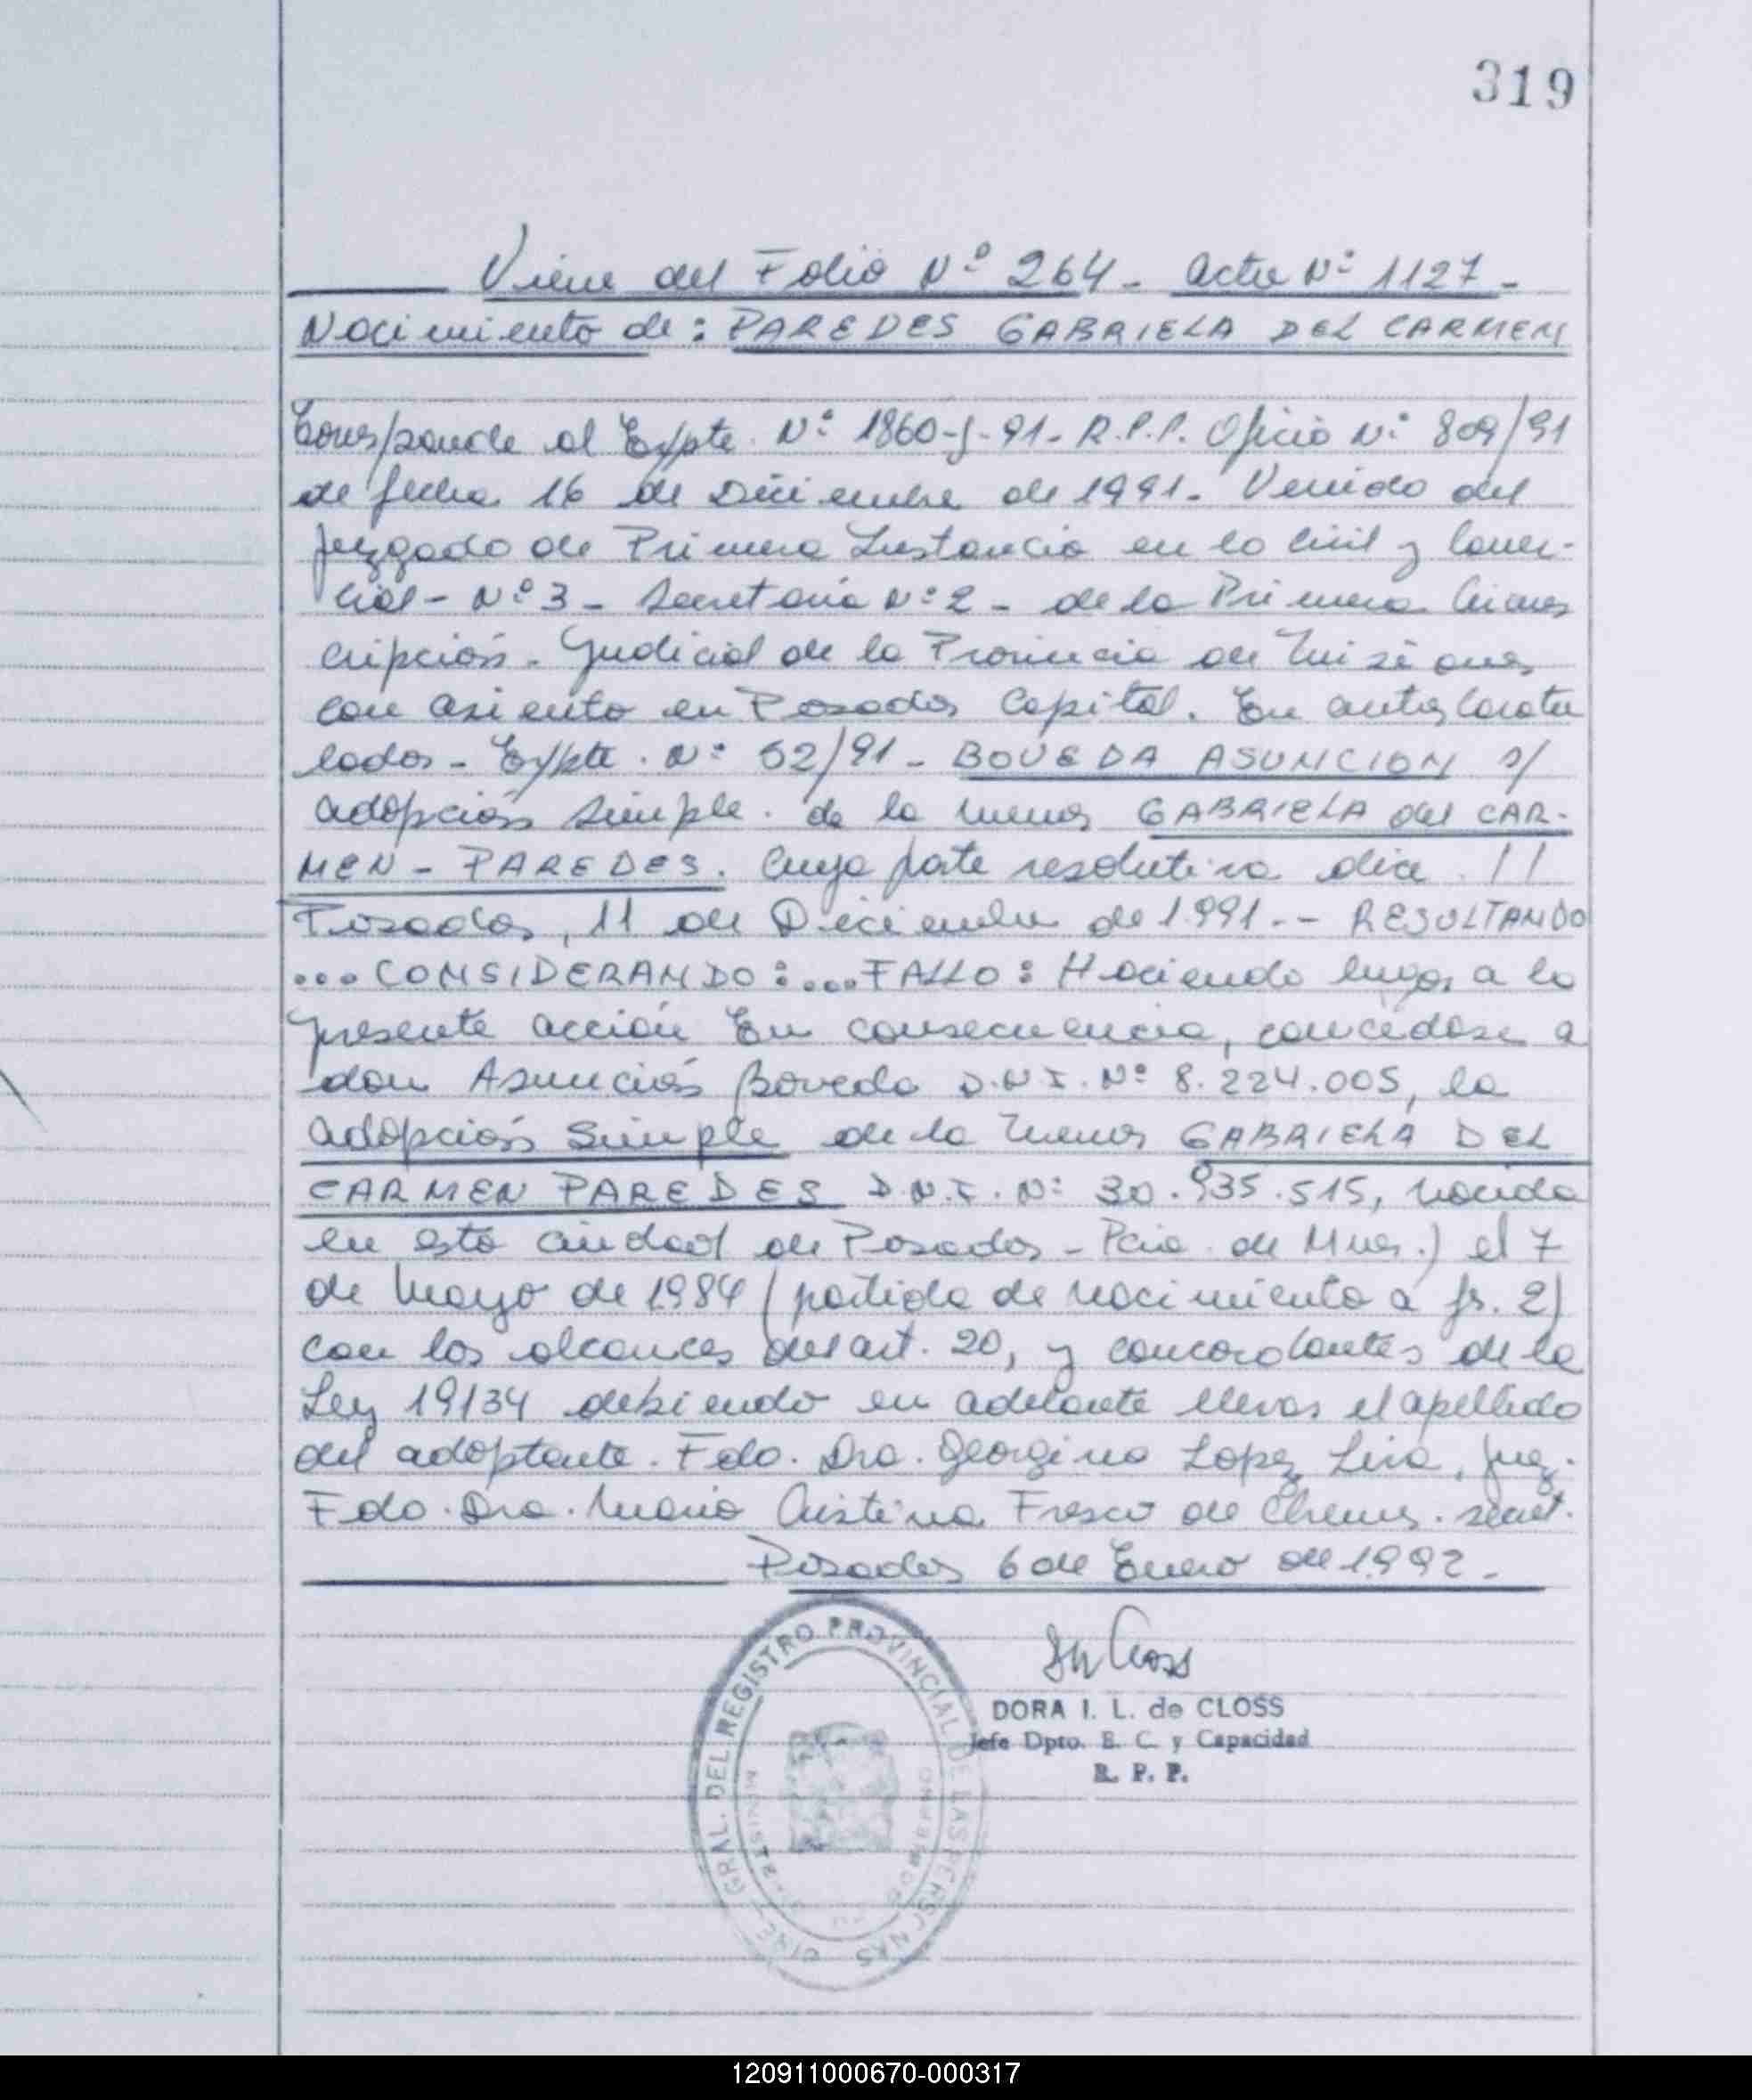 319
Viene del Folio Nº 264 - Acta Nº 1127 -
Nacimiento de: PAREDES GABRIELA DEL CARMEN
Corresponde al Expte. Nº 1860-J-91- R.P.P. Oficio Nº 809/91
de fecha 16 de Diciembre de 1991- Venido del
Juzgado de Primera Instancia en lo Civil y Comer-
cial - Nº 3 - Secretaria Nº 2 - de la Primera Circuns
cripción - Judicial de la Provincia de Misiones
con asiento en Posadas Capital. En autos Caratu
lados - Expte. Nº 52/91 - BOVEDA ASUNCION s/
adopción simple. de la menor GABRIELA del CAR-
MEN - PAREDES. Cuya parte resolutiva dice. //
Posadas, 11 de Diciembre de 1.991.-- RESULTANDO
... CONSIDERANDO: ... FALLO: Haciendo lugar a la
presente acción En consecuencia, concédase a
don Asunción Boveda D.N.I. Nº 8.224.005, la
adopción Simple de la menor GABRIELA DEL
CARMEN PAREDES D.N.I. Nº 30.935.515, nacida
en esta ciudad de Posadas - Pcia. de Mnes.) el 7
de Mayo de 1984 (partida de nacimiento a fs. 2)
con los alcances del art. 20, y concordantes de la
Ley 19134 debiendo en adelante llevar el apellido
del adoptante. Fdo. Dra. Georgina Lopez Liva, Juez.
Fdo. Dra. Maria Cristina Fresco de secret.
Posadas 6 de Enero de 1.992.-
DORA I. L. de CLOSS
Jefe Dpto. E. C. y Capacidad
R. P. P.
GRAL. DEL REGISTRO PROVINCIAL DE LAS PERSONAS
120911000670-000317